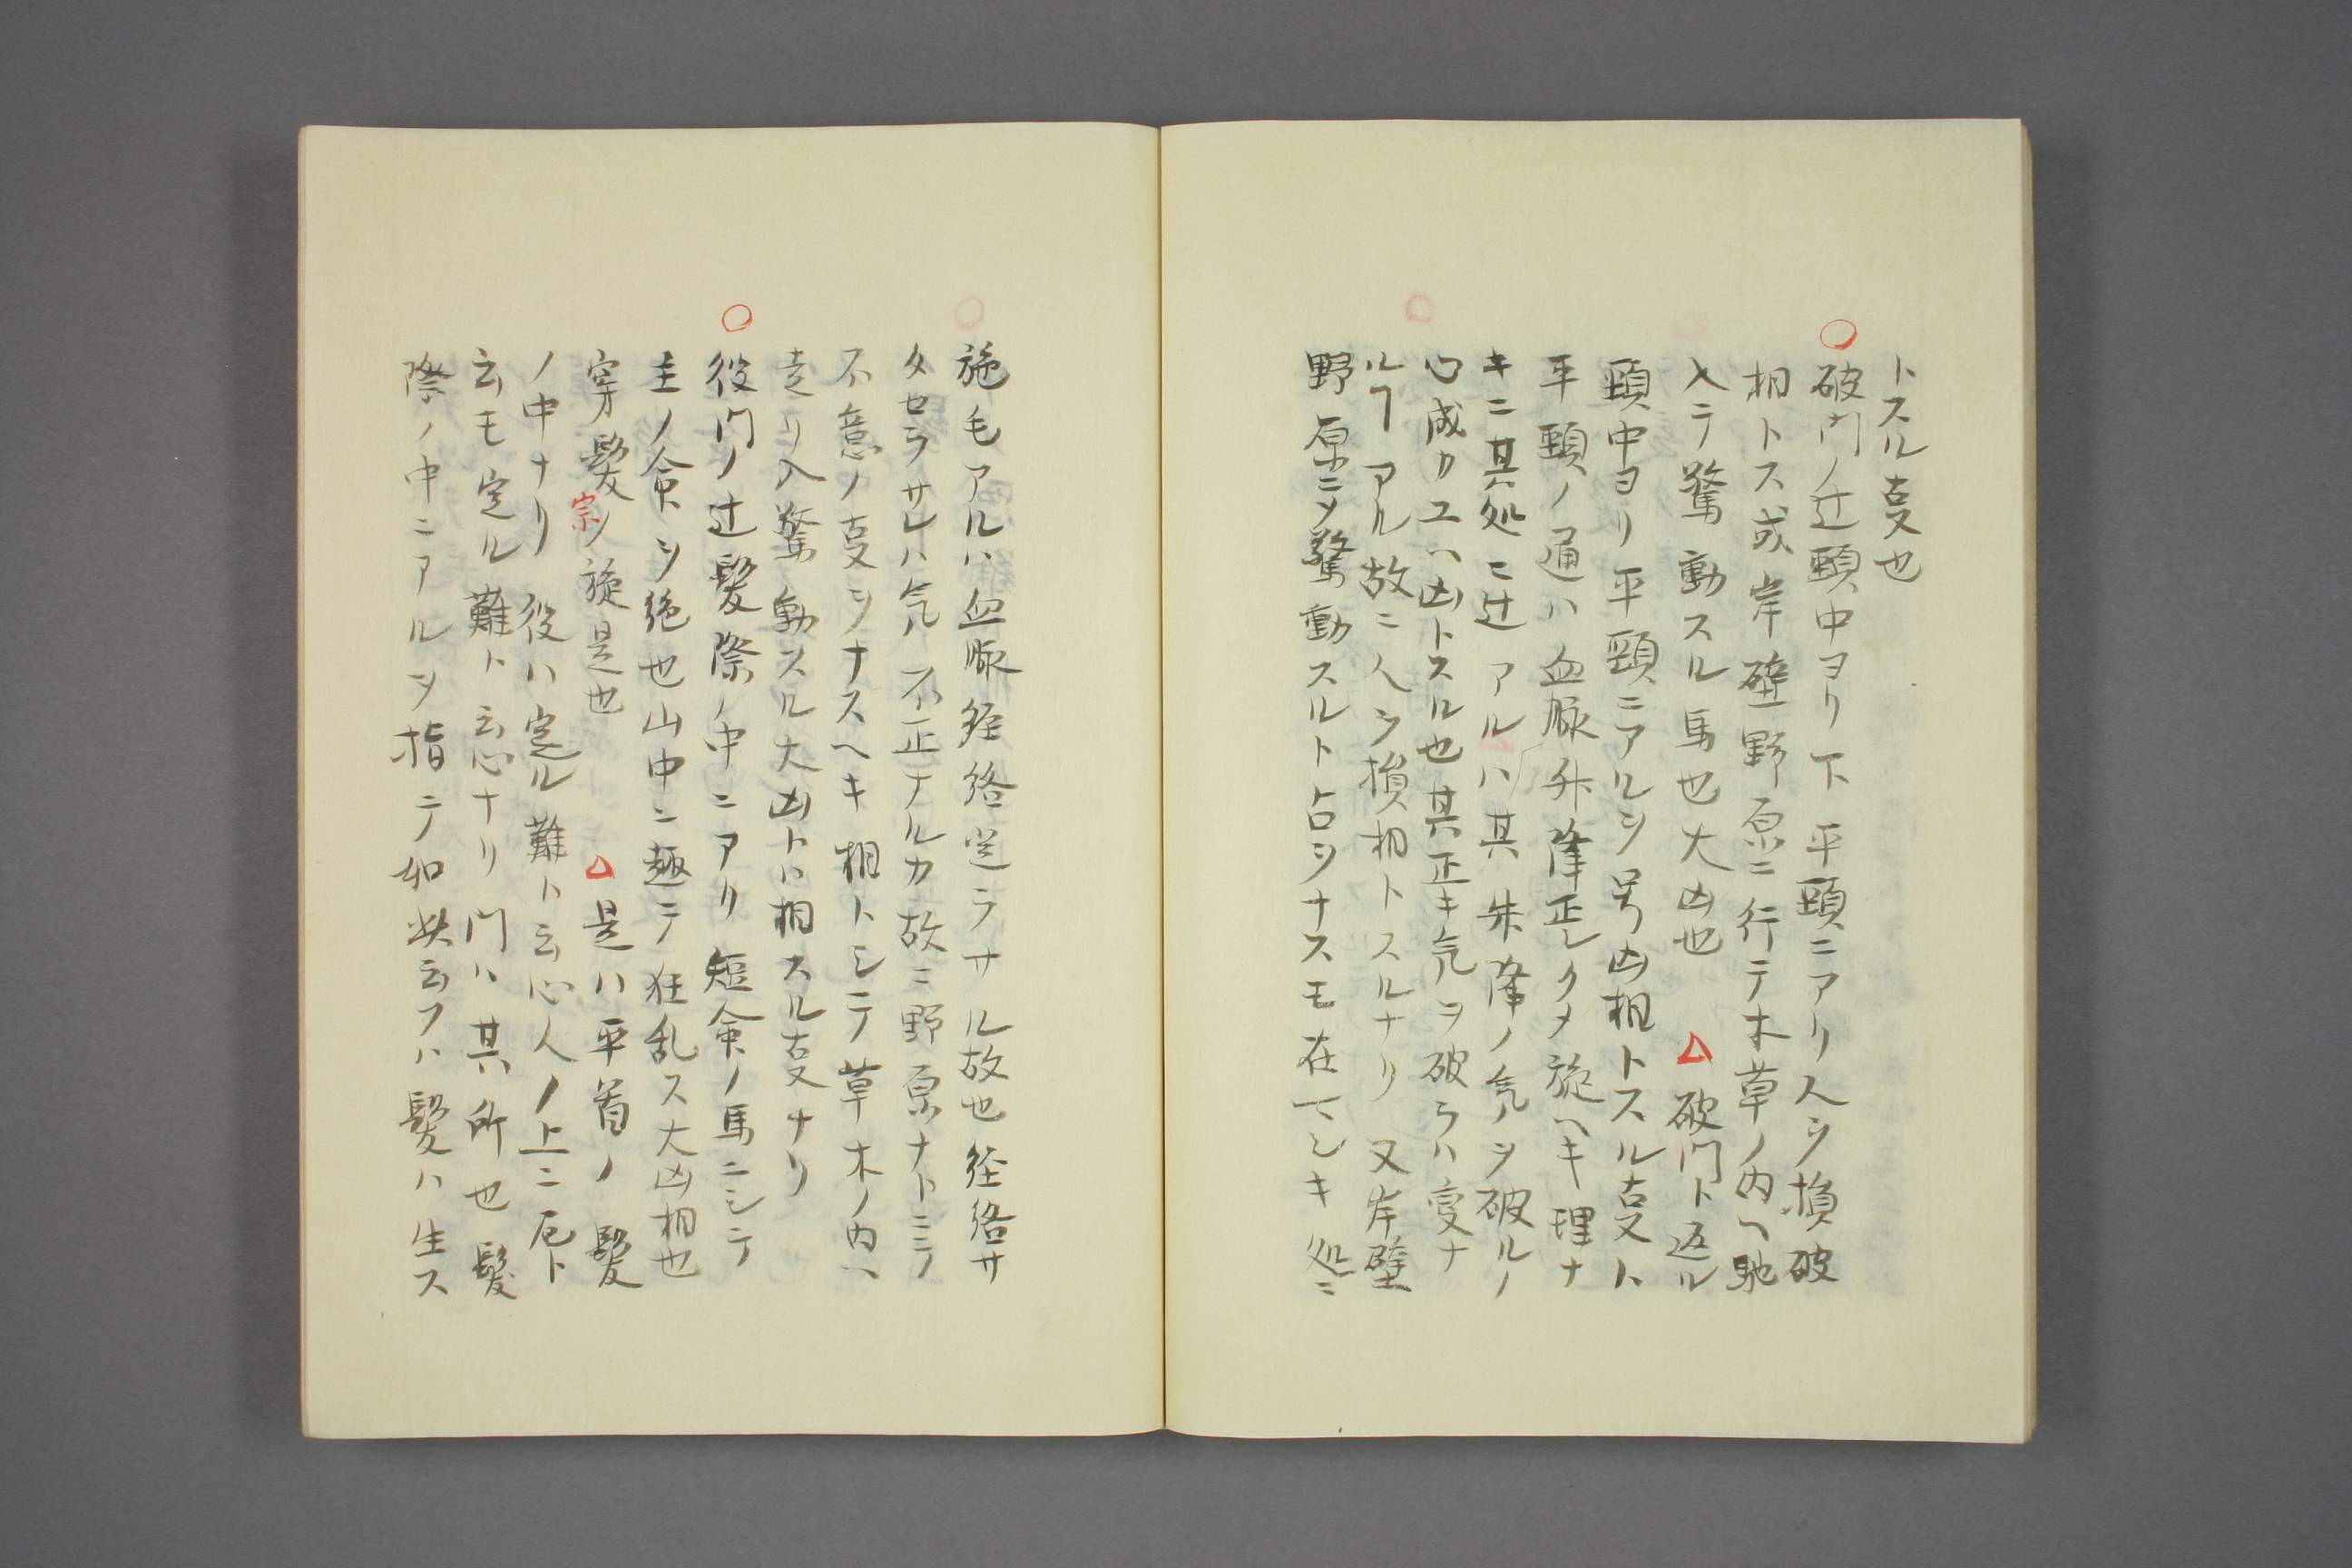 トスル叓也
○破門ノ辻頸中ヨリ下平頸ニアリ人ヲ損破
相トス或岸壁野原ニ行テ木草ノ内ヘ馳
入テ驚動スル馬也大凶也 △破門ト返ル
頸中ヨリ平頸ニアルヲ号凶相トスル叓ト
平頸ノ通ハ血脈升降正シクメ旋ヘキ理ナ
キニ其処ニ辻アルハ其舛降ノ気ヲ破ルノ
心成カユヘ凶トスル也其正キ気ヲ破ラハ変ナ
ルヿアル故ニ人ヲ損相トスルナリ又岸壁
野原ニメ驚動スルト占ヲナスモ在マシキ処ニ
施毛アルハ血脈経絡定ラサル故也経絡サ
タセラサレハ気ノ不正ナルカ故ニ野原ナトニテ
不意ノ叓ヲナスヘキ相トシテ草木ノ内ヘ
走リ入驚動スル大凶トハ相スル叓ナリ
○役門ノ辻髪際ノ中ニアリ短命ノ馬ニシテ
主ノ命ヲ絶也山中ニ趣テ狂乱ス大凶相也
穿髪ノ旋是也 △是ハ平首ノ髪
宗
ノ中ナリ役ハ定ル難ト云心人ノ上ニ厄ト
云モ定ル難ト云心ナリ門ハ其所也髪
際ノ中ニアルヲ指テ如此云フハ髪ハ生ス